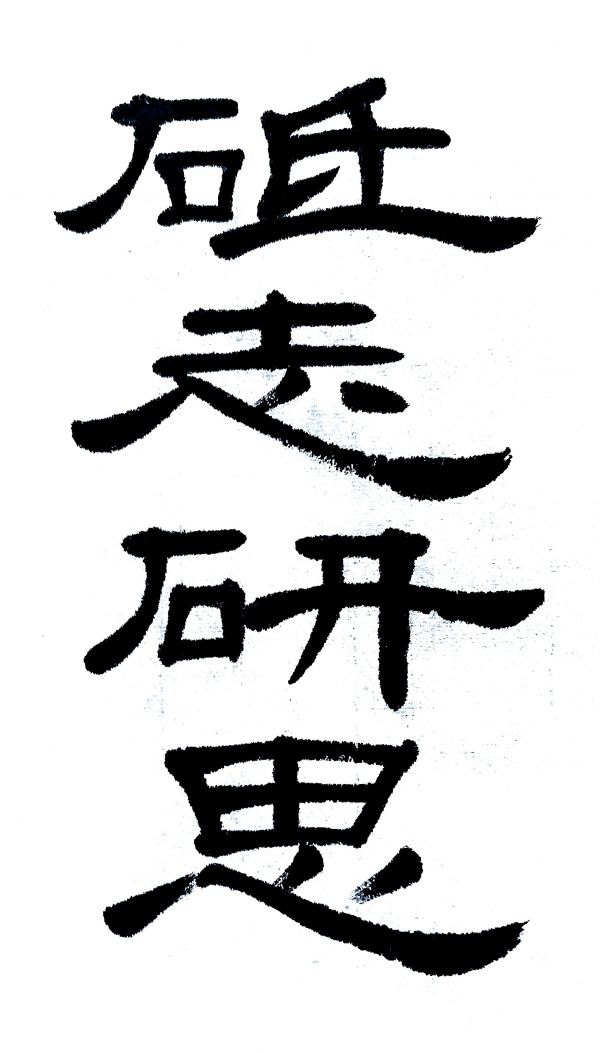 砥志研思